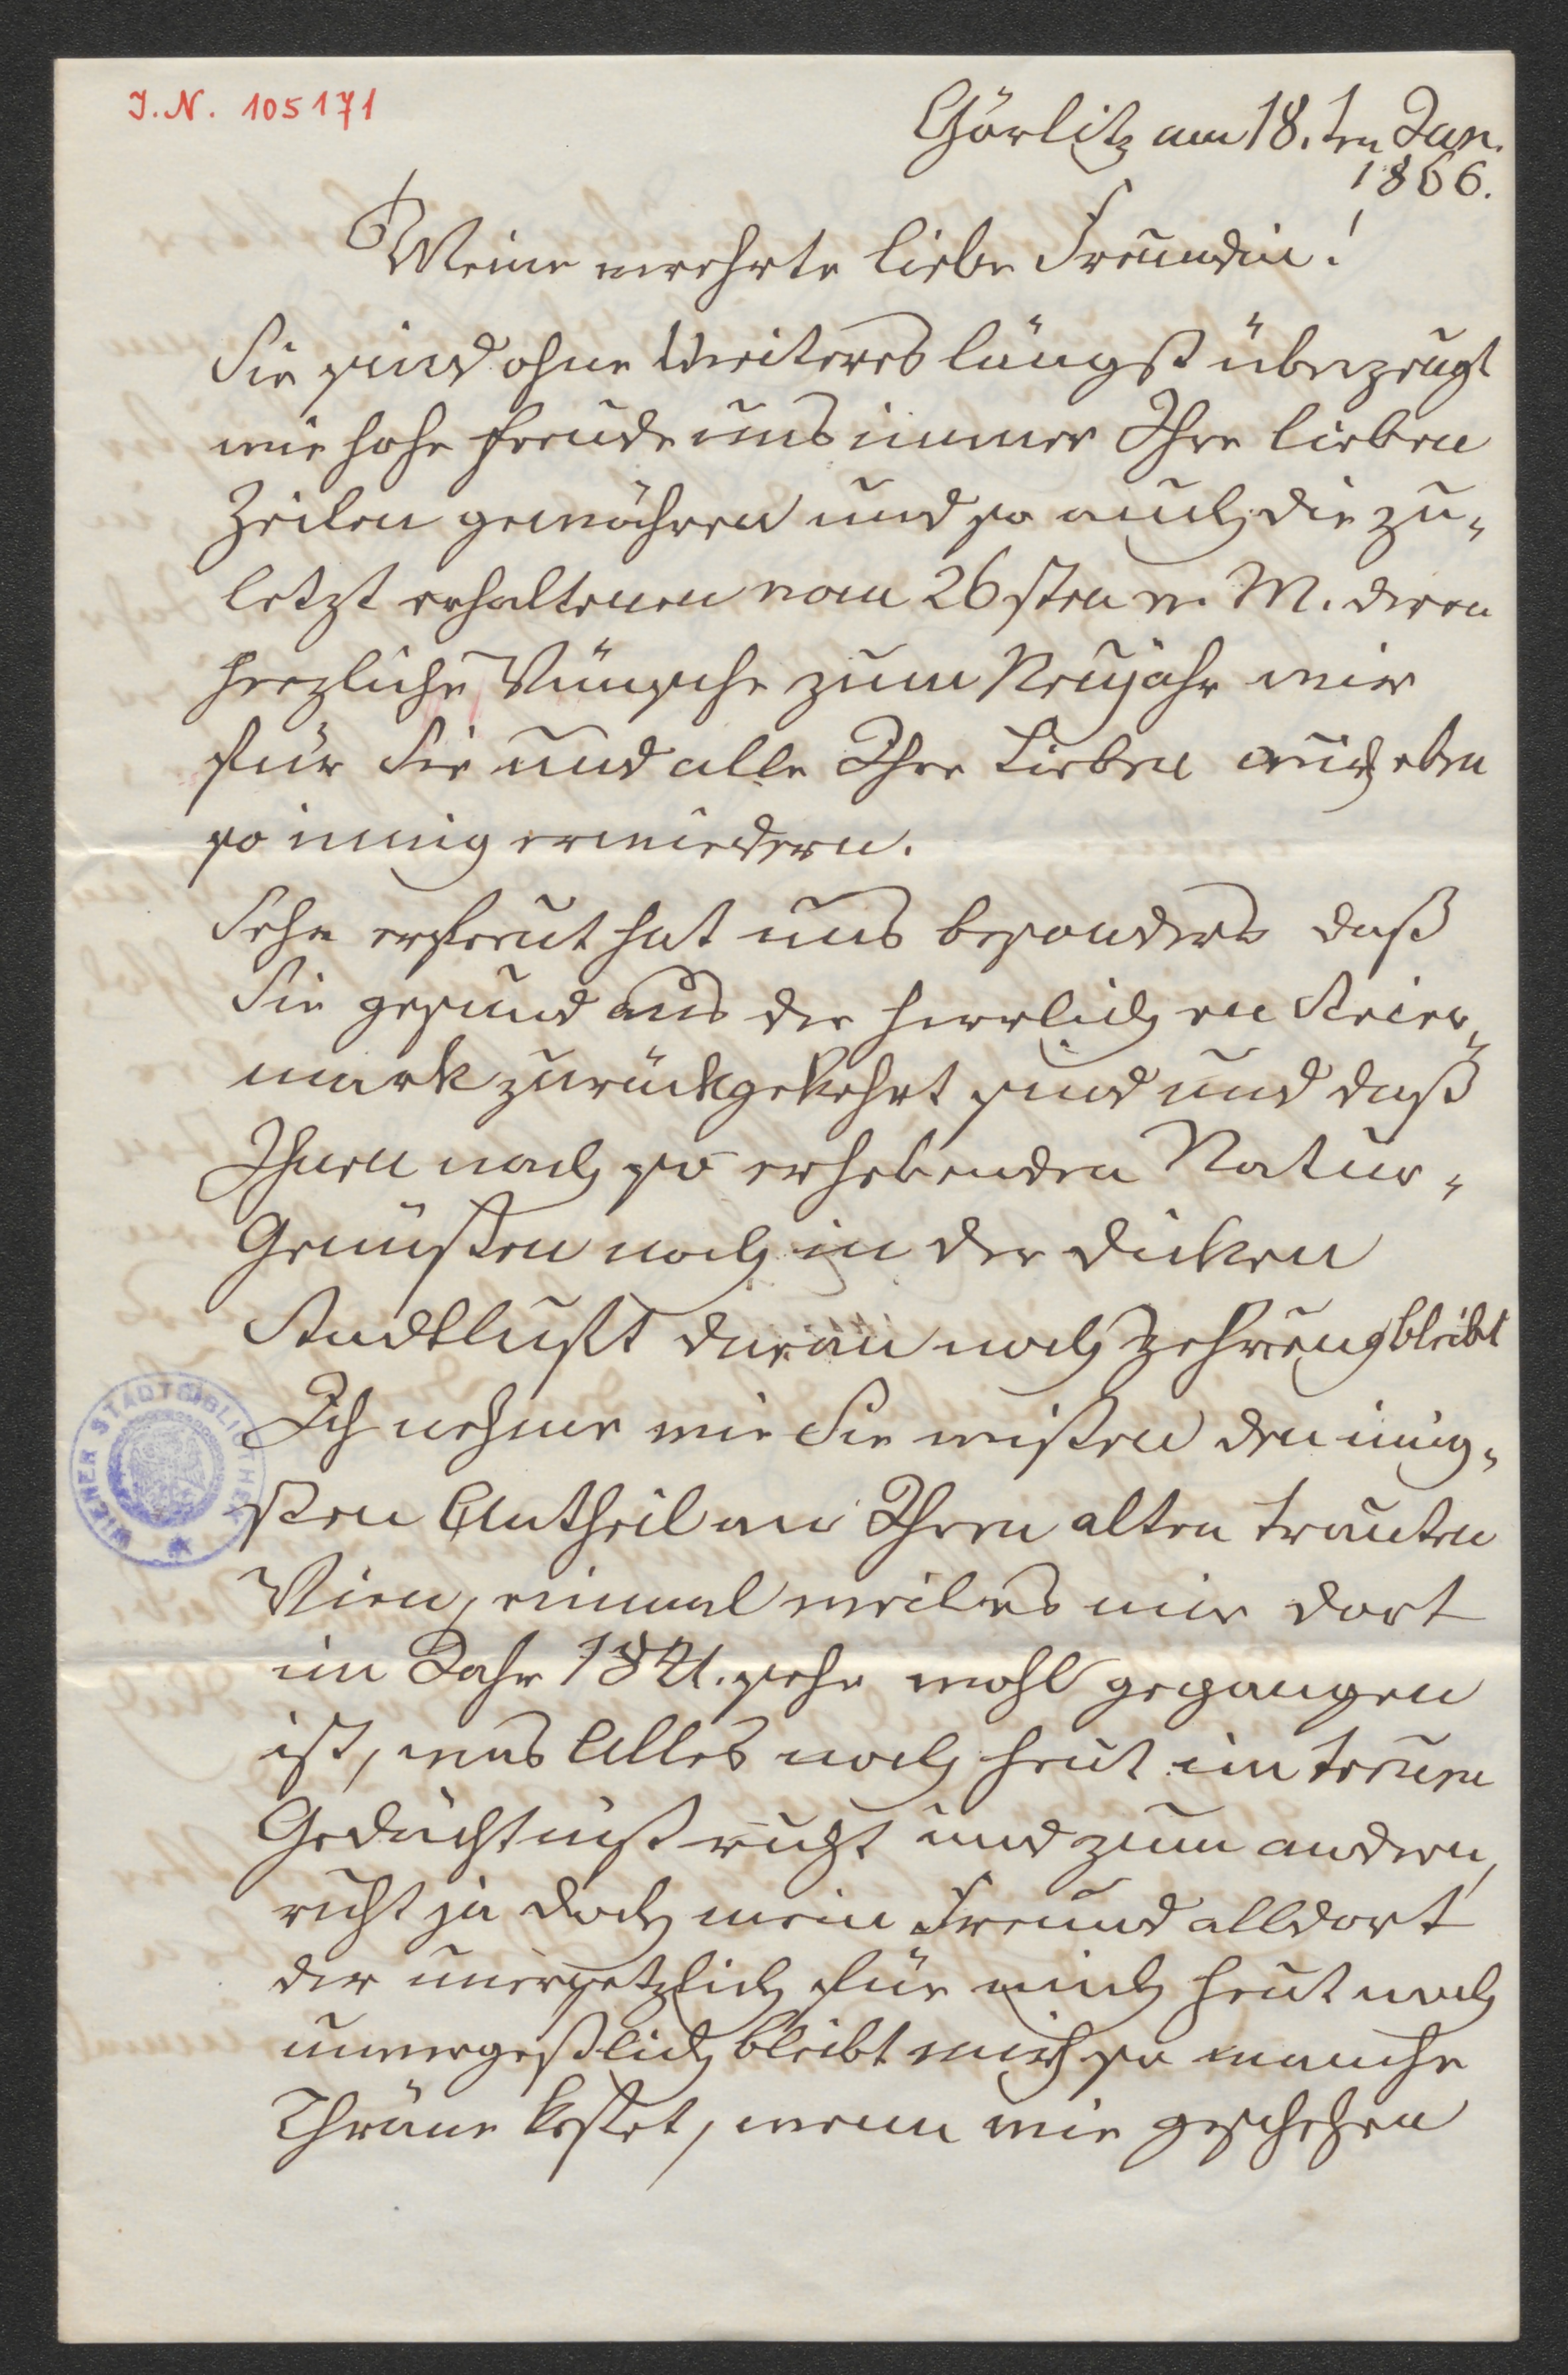 J. N. 105171
Görlitz am 18. ten Jan.
1866.
Meine verehrte liebe Freundin!
Sie sind ohne Weiteres längst überzeugt
wie hohe Freude uns immer Ihre lieben
Zeilen gewähren und so auch die zu-
letzt erhaltenen vom 26sten v. M. deren
herzliche Wünsche zum Neujahr wir
für Sie und alle Ihre Lieben auch eben
so innig erwiedern.
Sehr erfreut hat uns besonders daß
Sie gesund aus der herrlichen Steier-
mark zurückgekehrt sind und daß
Ihnen nach so erhebenden Natur-
Genüßen noch in der dicken
Stadtluft daran noch Zehrung bleibt
Ich nehme wie Sie wißen den innig-
sten Antheil an Ihren alten trauten
Wien, einmal weil es mir dort
im Jahr 1821. sehr wohl gegangen
ist, was Alles noch heut im treuen
Gedächtniß ruht und zum andern,
ruht ja doch mein Freund alldort
der unersetzlich für mich heut noch
unvergeßlich bleibt mich so manche
Thräne kostet, wenn wie geschehen
WIENER STADTBIBLIOTHEK